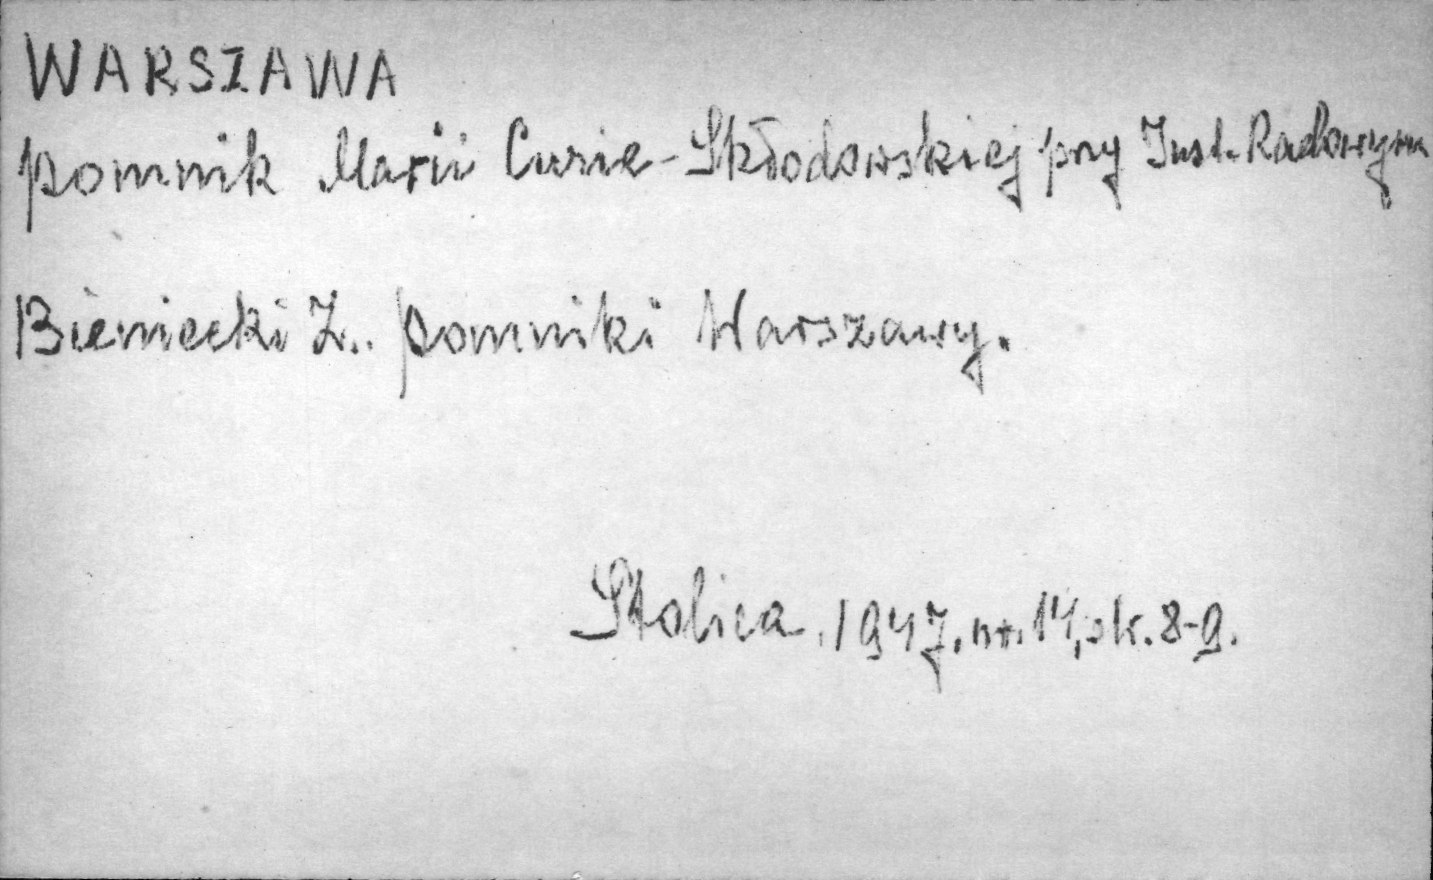 WARSZAWA
pomnik Marii Curie-Skłodowskiej przy Inst. Radowym
Bieniecki Z.. pomniki Warszawy.
Stolica, 1947, nr. 14, str. 8-9.